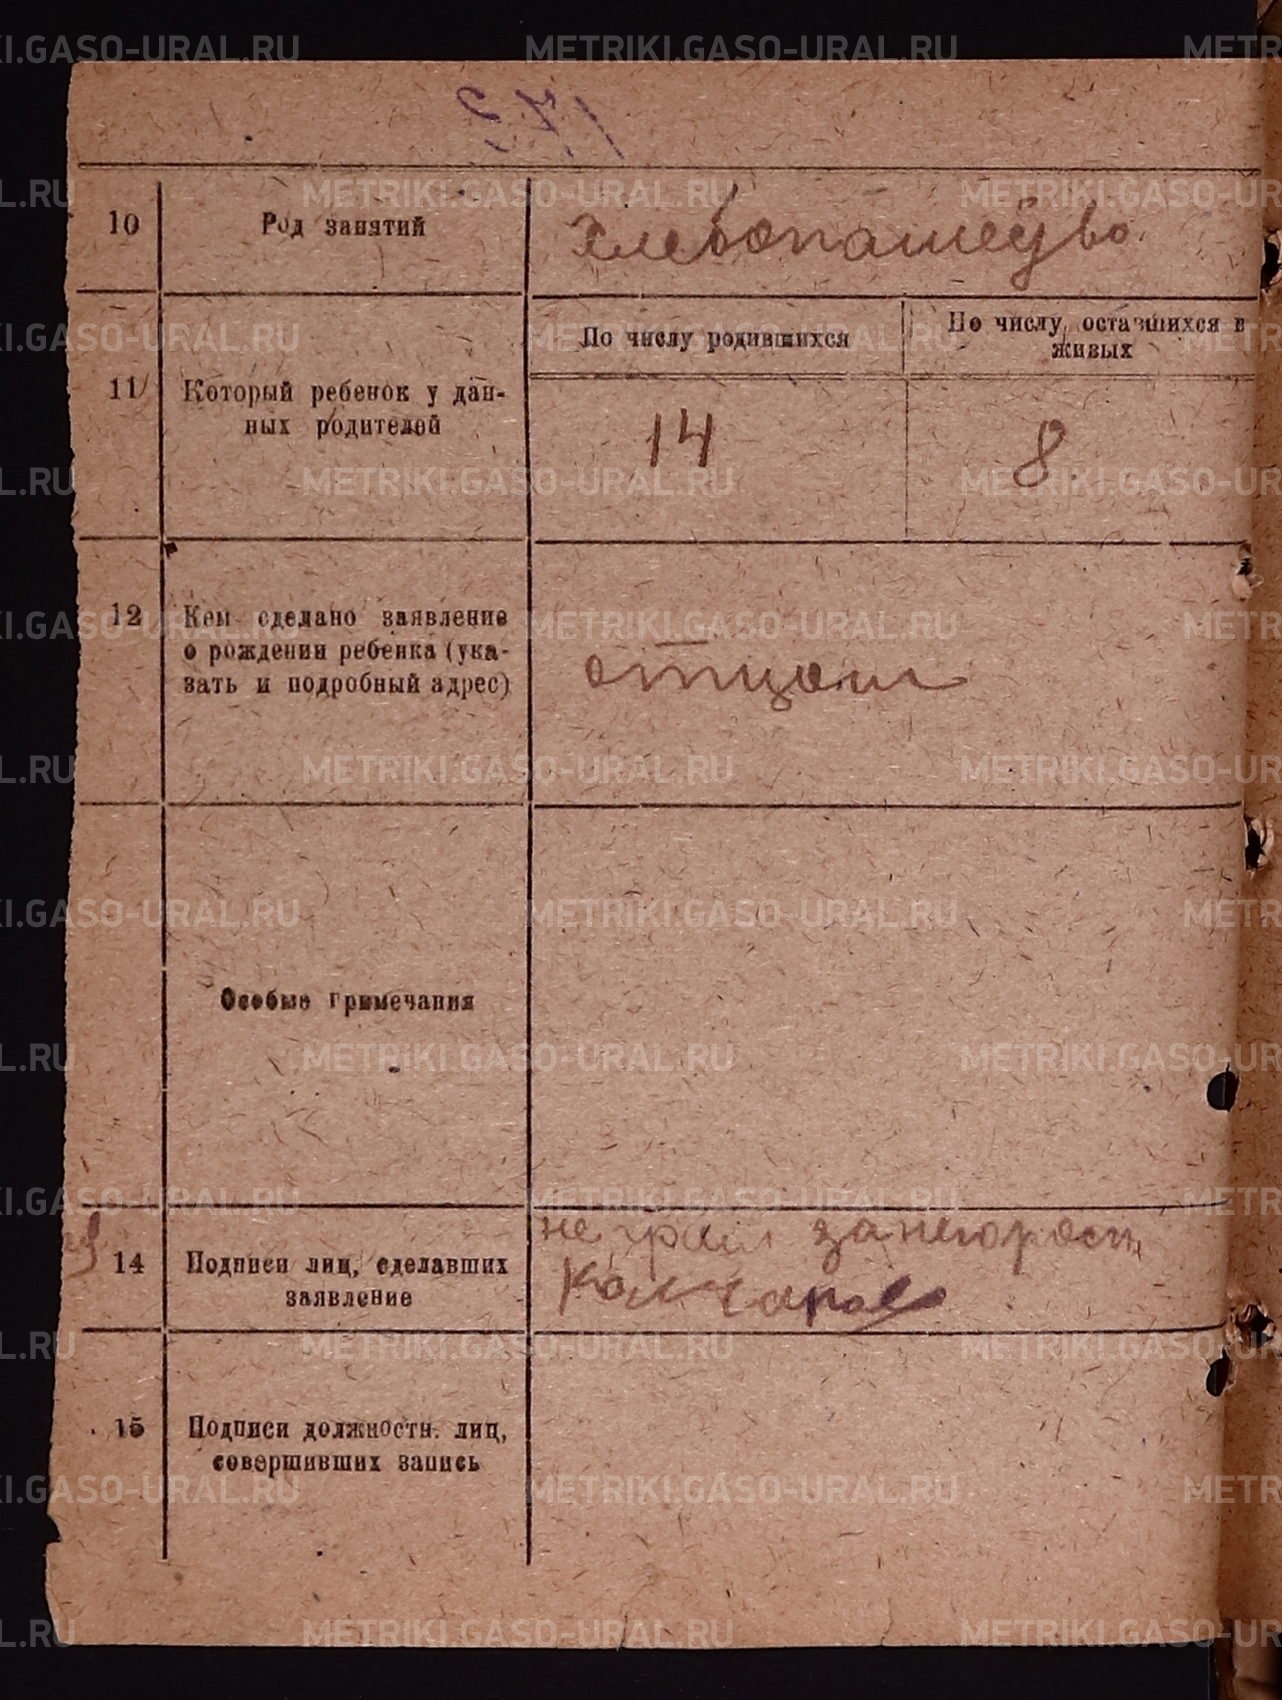 10 Род занятий хлебопашество
11 Который ребенок у дан-
ных родителей
По числу родившихся
По числу оставшихся в
живых
14 8
12 Кем сделано заявление
о рождении ребенка (ука-
зать и подробный адрес)
отцом
Особые примечания
14 Подписи лиц, сделавших
заявление
не грам за него рос
15 Подписи должностн. лиц,
совершивших запись
METRIKI.GASO-URAL.RU